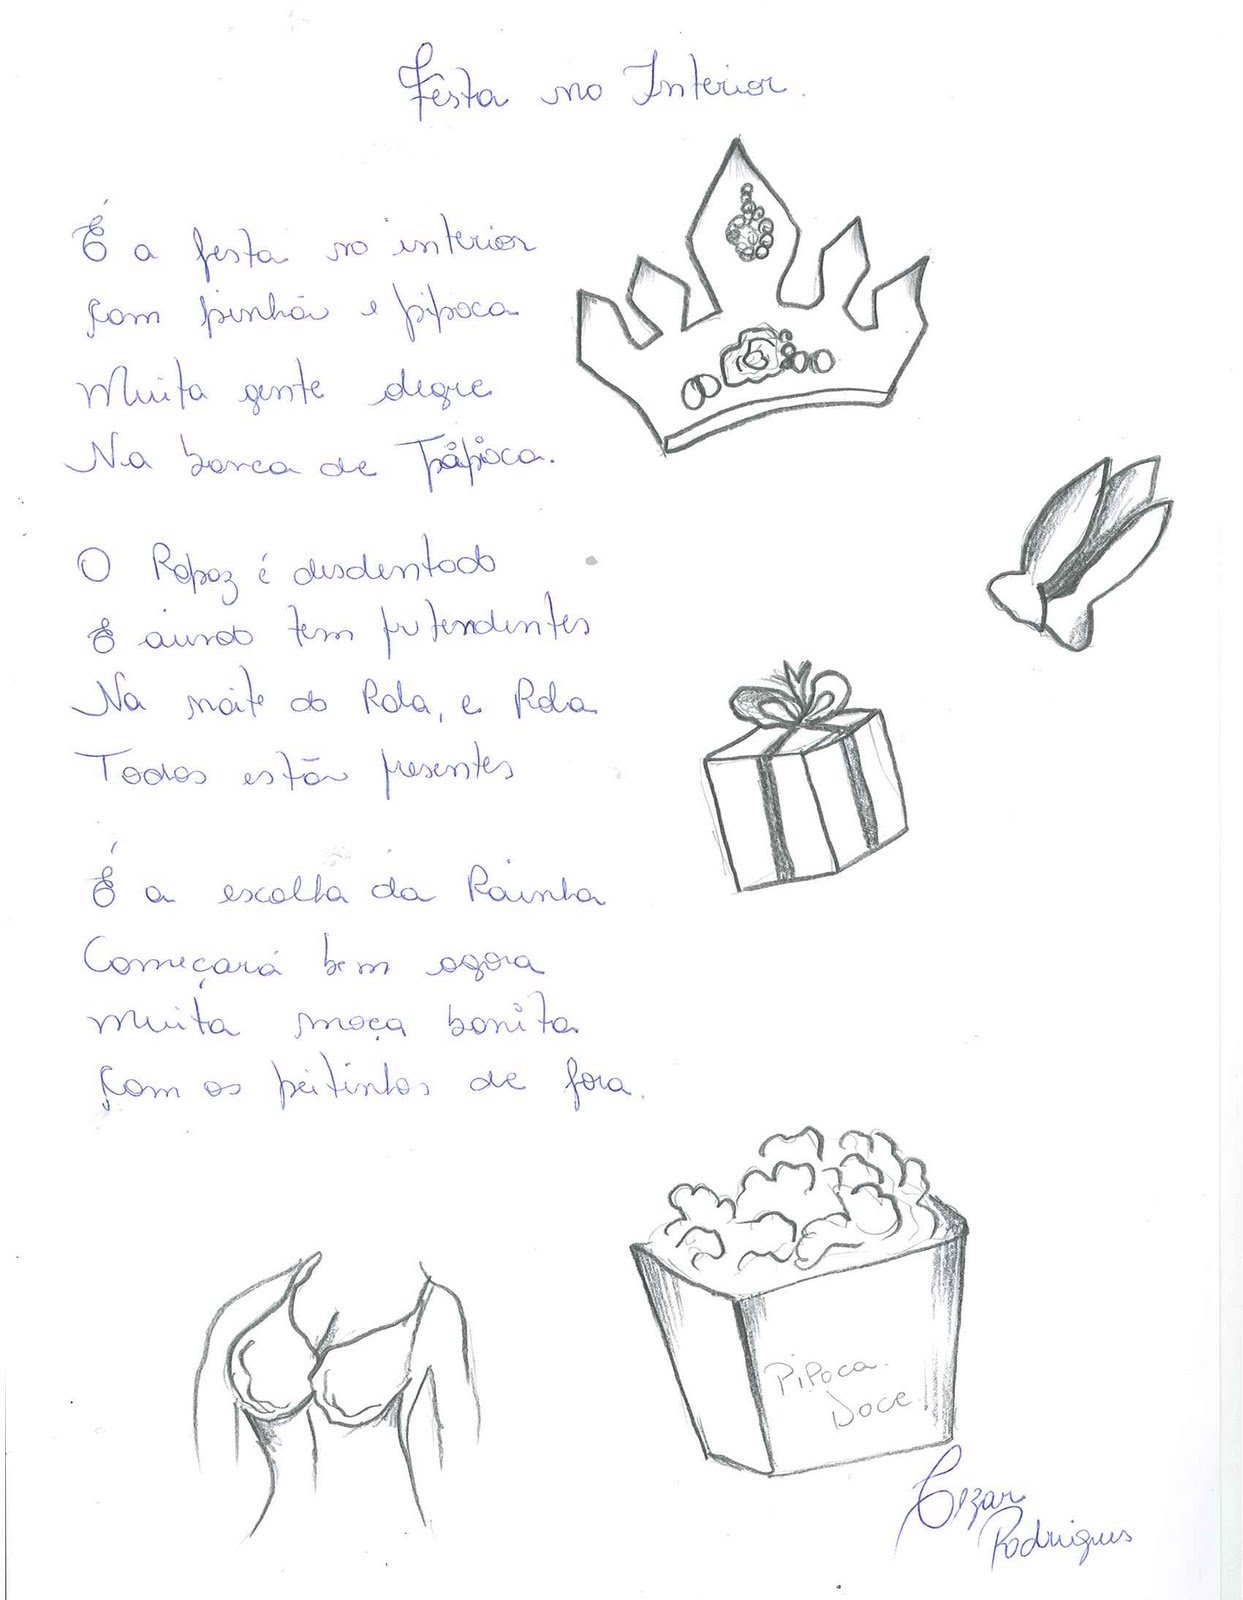 Festa no Interior.
É a festa no interior
Com pinhão e pipoca
Muita gente alegre
Na barca de Tapioca.
O Rapaz é desdentado
E ainda tem pretendentes
Na noite do Rola, e Rola
Todos estão presentes
É a escolha da Rainha
Começará bem agora
Muita moça bonita
Com os peitinhos de fora.
Pipoca
Doce
Cezar
Rodrigues